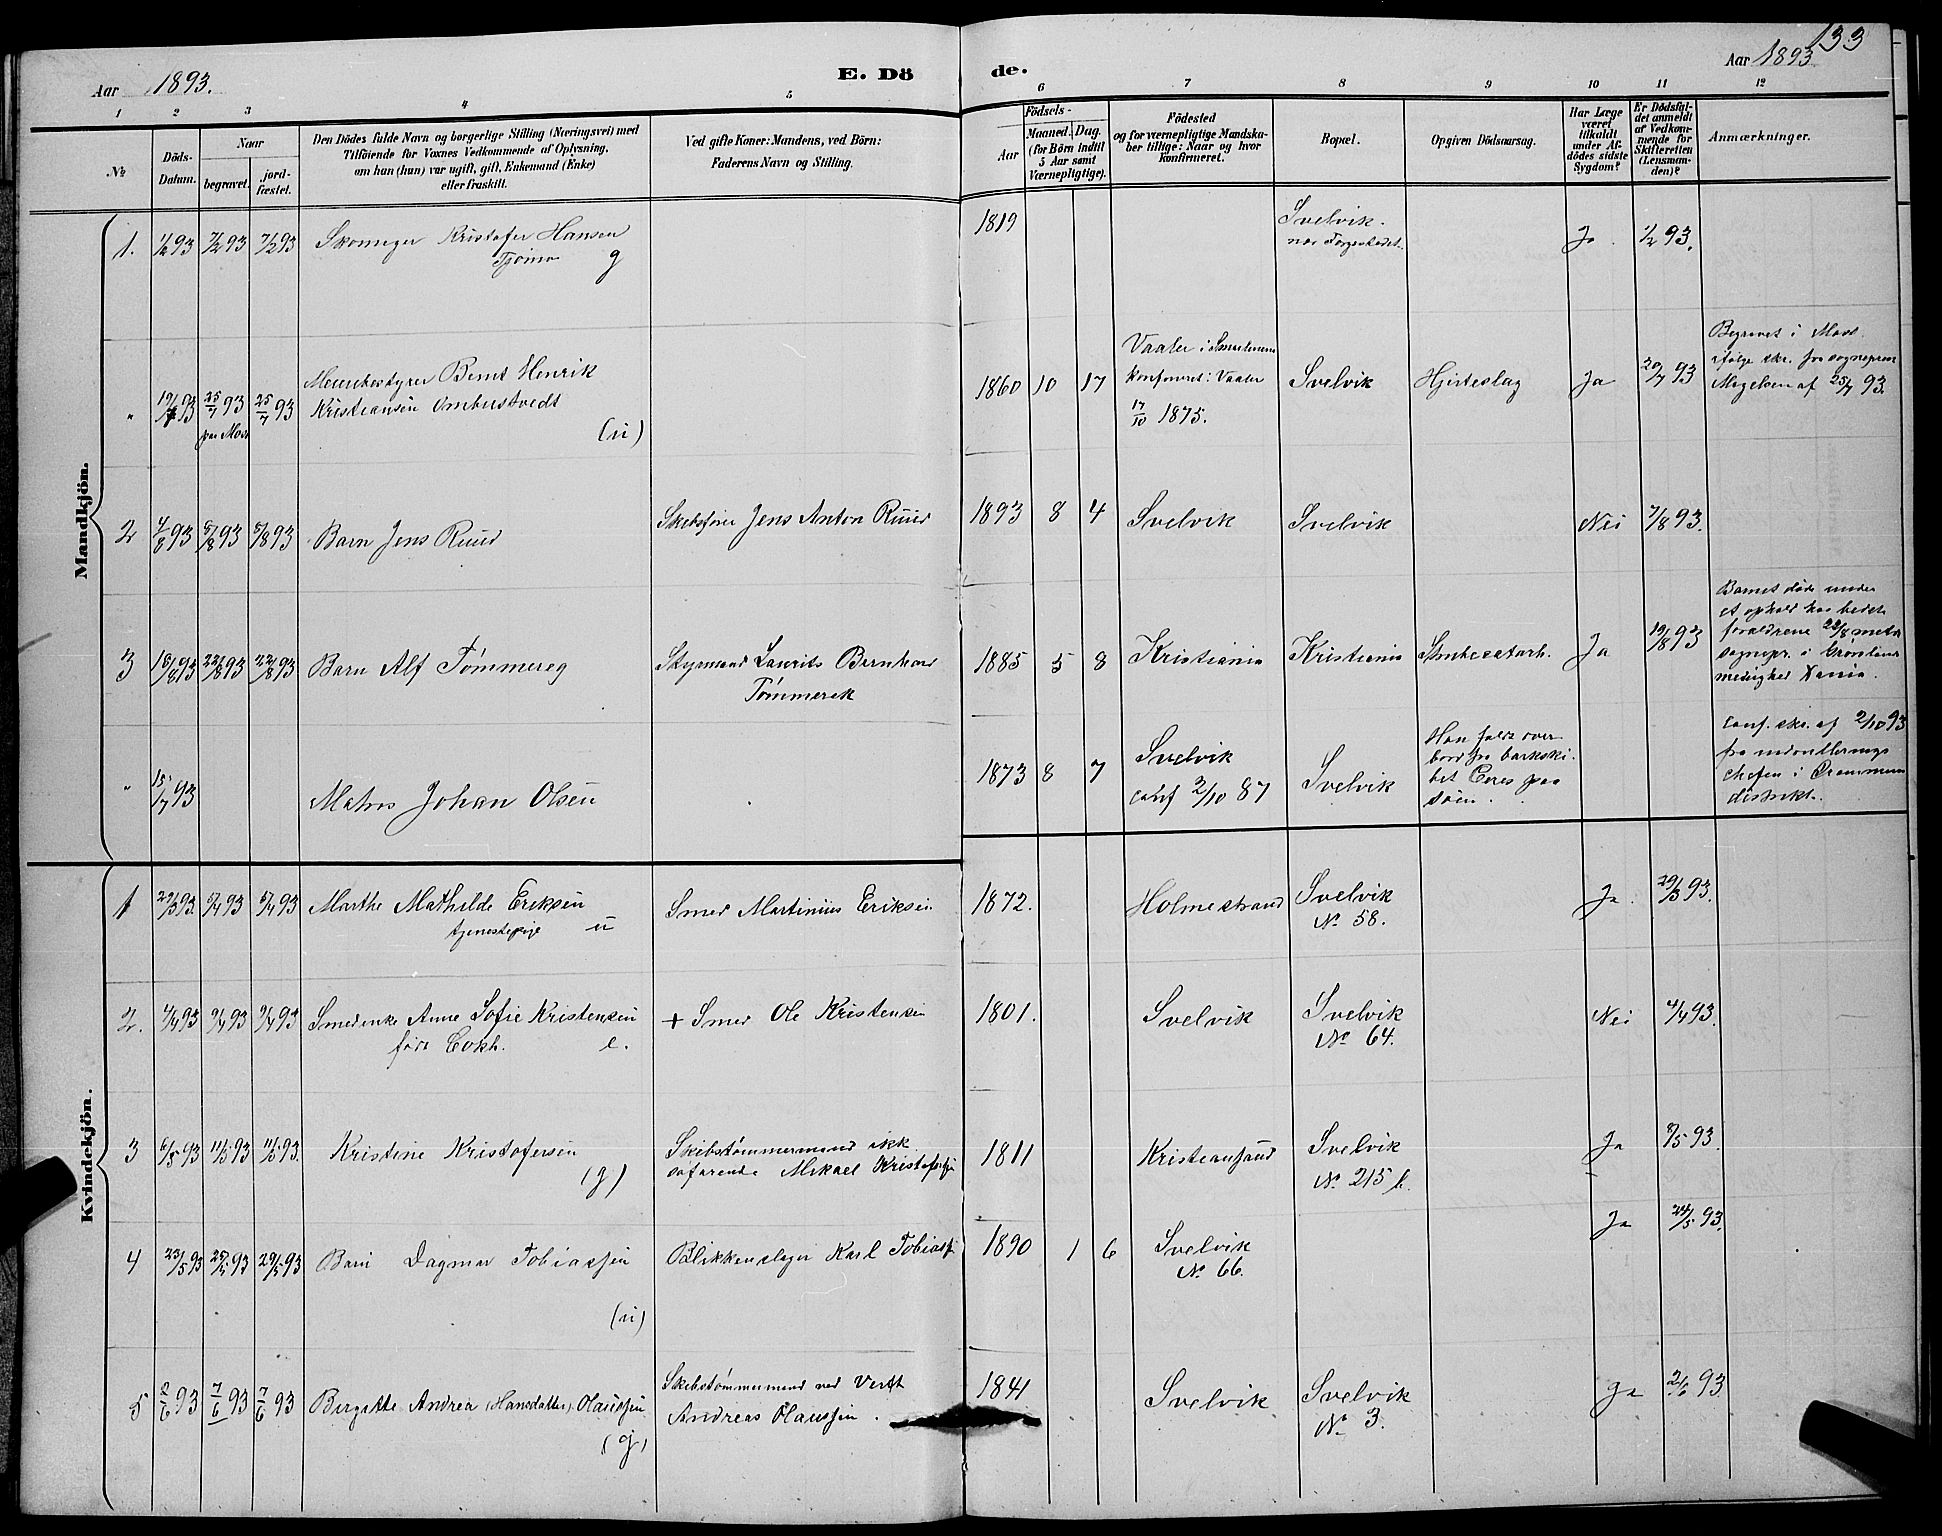 133
Aar 1893.
E. Dö
de.
Aar 1893
1 2 3 4 5 6 7 8 9 10 11 12
№
Döds-
Datum.
Naar
begravet.
jord-
fæstet.
Den Dödes fulde Navn og borgerlige Stilling (Næringsvei) med
Tilföiende for Voxnes Vedkommende af Oplysning,
om han (hun) var ugift, gift, Enkemand (Enke)
eller fraskilt.
Ved gifte Koner: Mandens, ved Börn:
Faderens Navn og Stilling.
Födsels-
Aar
Maaned. Dag.
(for Börn indtil
5 Aar samt
Værnepligtige).
Födested
og for værnepligtige Mandska-
ber tillige: Naar og hvor
konfirmeret.
Bopæl.
Opgiven Dödsaarsag.
Har Læge
været
tilkaldt
under Af-
dödes sidste
Sygdom?
Er Dödsfal-
det anmeldt
af Vedkom-
mende for
Skifteretten
(Lensman-
den)?
Anmærkninger.
Mandkjön.
1. 1/2 93 7/2 93 7/2 93 Skomager Kristofer Hansen
Tjømø g
1819
Svelvik.
nær Færgestedet.
Ja. 1/2 93.
" 19/7 93 25/7 93 25/7 93
paa Moss
Bernt Henrik
Kristiansen Ombustvedt
(u)
1860 10 17
Vaaler i Smaalenene
Konfirmeret i Vaaler
17/10 1875.
Svelvik Hjerteslag Ja 20/7 93
Begravet i Moss
ifølge skr. fra sognepræst
Magelsen af 25/7 93.
2 4/8 93 8/8 93 8/8 93 Barn Jens Ruud
Skibsfører Jens Anton Ruud
1893 8 4 Svelvik Svelvik Nei 7/8 93.
3 18/8 93 22/8 93 22/8 93 Barn Alf Tømmereg
Styrmand Laurits Bernhard
Tømmerek
1885 5 8 Kristiania Kristiania Ja 19/8 93
Barnet døde under
et ophold hos
forældrene 22/8
sognepr. i Grønlands
menighed Xania.
" 15/7 93 Matros Johan Olsen
1873 8 7 Svelvik
conf 2/10 87
Svelvik
Han faldt over-
bord fra barkski-
bet Ceres paa
søen.
conf. skr. af 2/10 93
fra
chefen i Drammens
distrikt.
Kvindekjön.
1 29/3 93. 5/4 93 5/4 93 Marthe Mathilde Eriksen
tjenestepige u
Smed Martinius Eriksen
1872. Holmestrand Svelvik
№ 58.
Ja. 29/3 93.
2. 4/4 93 9/4 93 9/4 93 Smedenke Anne Sofie Kristensen
født e.
+ Smed Ole Kristensen
1801. Svelvik Svelvik
№ 64.
Nei 4/4 93.
3 6/5 93 11/5 93 11/5 93. Kristine Kristofersen
(g)
Skibstømmermand ikk
søfarende Mikael Kristofersen
1811 Kristiansand Svelvik
№ 215 b.
Ja 8/5 93.
4 23/5 93 29/5 93 29/5 93 Barn Dagmar Tobiassen
(u)
Blikkenslager Karl Tobiassen
1890 1 6 Svelvik
№ 66.
Ja 24/5 93.
5 2/6 93 7/6 93 7/6 93 Birgitte Andrea (Hansdatter) Olaussen
(g)
Skibstømmermand ved Verft
Andreas Olaussen.
1841 Svelvik Svelvik
№ 3.
Ja 2/6 93